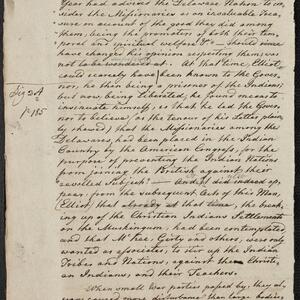 Year had advised the Delaware Nation to con-
sider the Missionaries as an invaluable Trea-
sure on account of the good they did among
them, being the promoters of both their tem-
poral and spiritual welfare — should since
have changed his opinion respecting them was
not to be wondered at. At that time, Elliot
could scarcely have been known to the Gover-
nor, he then being a prisoner of the Indians;
but now being liberated, he found means to
insinuate himself, so that he led the Gover-
nor to believe (as the tenour of his Letter plain-
ly shewed) that the Missionaries among the
Delawares, had been placed in the Indian
Country by the American Congress, for the
purpose of preventing the Indian Nations
from joining the British against their
rebelled Subjects! And it did indeed ap-
pear, from the subsequent Acts of this Man,
(Elliot) that already at that time, the break-
ing up of the Christian Indians Settlements
on the Muskingum, had been contemplated
and that McKee, Girty and others, were only
wanted as Associates, to stir up the Indian
Tribes and Nations, against the Christi-
an Indians, and their Teachers.
When small War parties passed by, they al-
ways caused more disturbance than large bodies